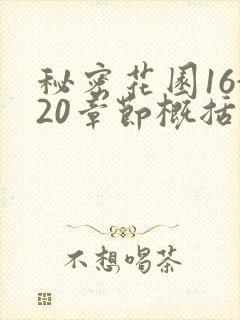 秘密花园16-
20章节概括
不想喝茶